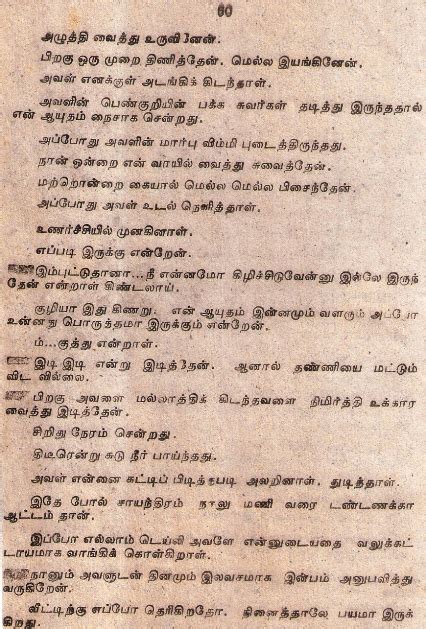 60
அழுத்தி வைத்து உருவினேன்.
பிறகு ஒரு முறை திணித்தேன். மெல்ல இயங்கினேன்.
அவள் எனக்குள் அடங்கிக் கிடந்தாள்.
அவளின் பெண்குறியின் பக்க சுவர்கள் தடித்து இருந்ததால்
என் ஆயுதம் நைசாக சென்றது.
அப்போது அவளின் மார்பு விம்மி புடைத்திருந்தது.
நான் ஒன்றை என் வாயில் வைத்து சுவைத்தேன்.
மற்றொன்றை கையால் மெல்ல மெல்ல பிசைந்தேன்.
அப்போது அவள் உடல் நெளித்தாள்.
உணர்ச்சியில் முனகினாள்.
எப்படி இருக்கு என்றேன்.
இம்புட்டுதானா...நீ என்னமோ கிழிச்சிடுவேன்னு இல்லே இருந்
தேன் என்றாள் கிண்டலாய்.
குழியா இது கிணறு. என் ஆயுதம் இன்னமும் வளரும் அப்போ
உன்னது பொருந்தமா இருக்கும் என்றேன்.
ம்...குத்து என்றாள்.
இடி இடி என்று இடித்தேன். ஆனால் தண்ணியை மட்டும்
விட வில்லை.
பிறகு அவளை மல்லாத்திக் கிடந்தவளை நிமிர்த்தி உக்கார
வைத்து இடித்தேன்.
சிறிது நேரம் சென்றது.
திடீரென்று சுடு நீர் பாய்ந்தது.
அவள் என்னை கட்டிப் பிடித்தபடி அலறினாள். துடித்தாள்.
இதே போல் சாயந்திரம் நாலு மணி வரை டண்டணக்கா
ஆட்டம் தான்.
இப்போ எல்லாம் டெய்லி அவளே என்னுடையதை வலுக்கட்
டாயமாக வாங்கிக் கொள்கிறாள்.
நானும் அவளுடன் தினமும் இலவசமாக இன்பம் அனுபவித்து
வருகிறேன்.
வீட்டிற்கு எப்போ தெரிகிறதோ. நினைத்தாலே பயமா இருக்
கிறது.